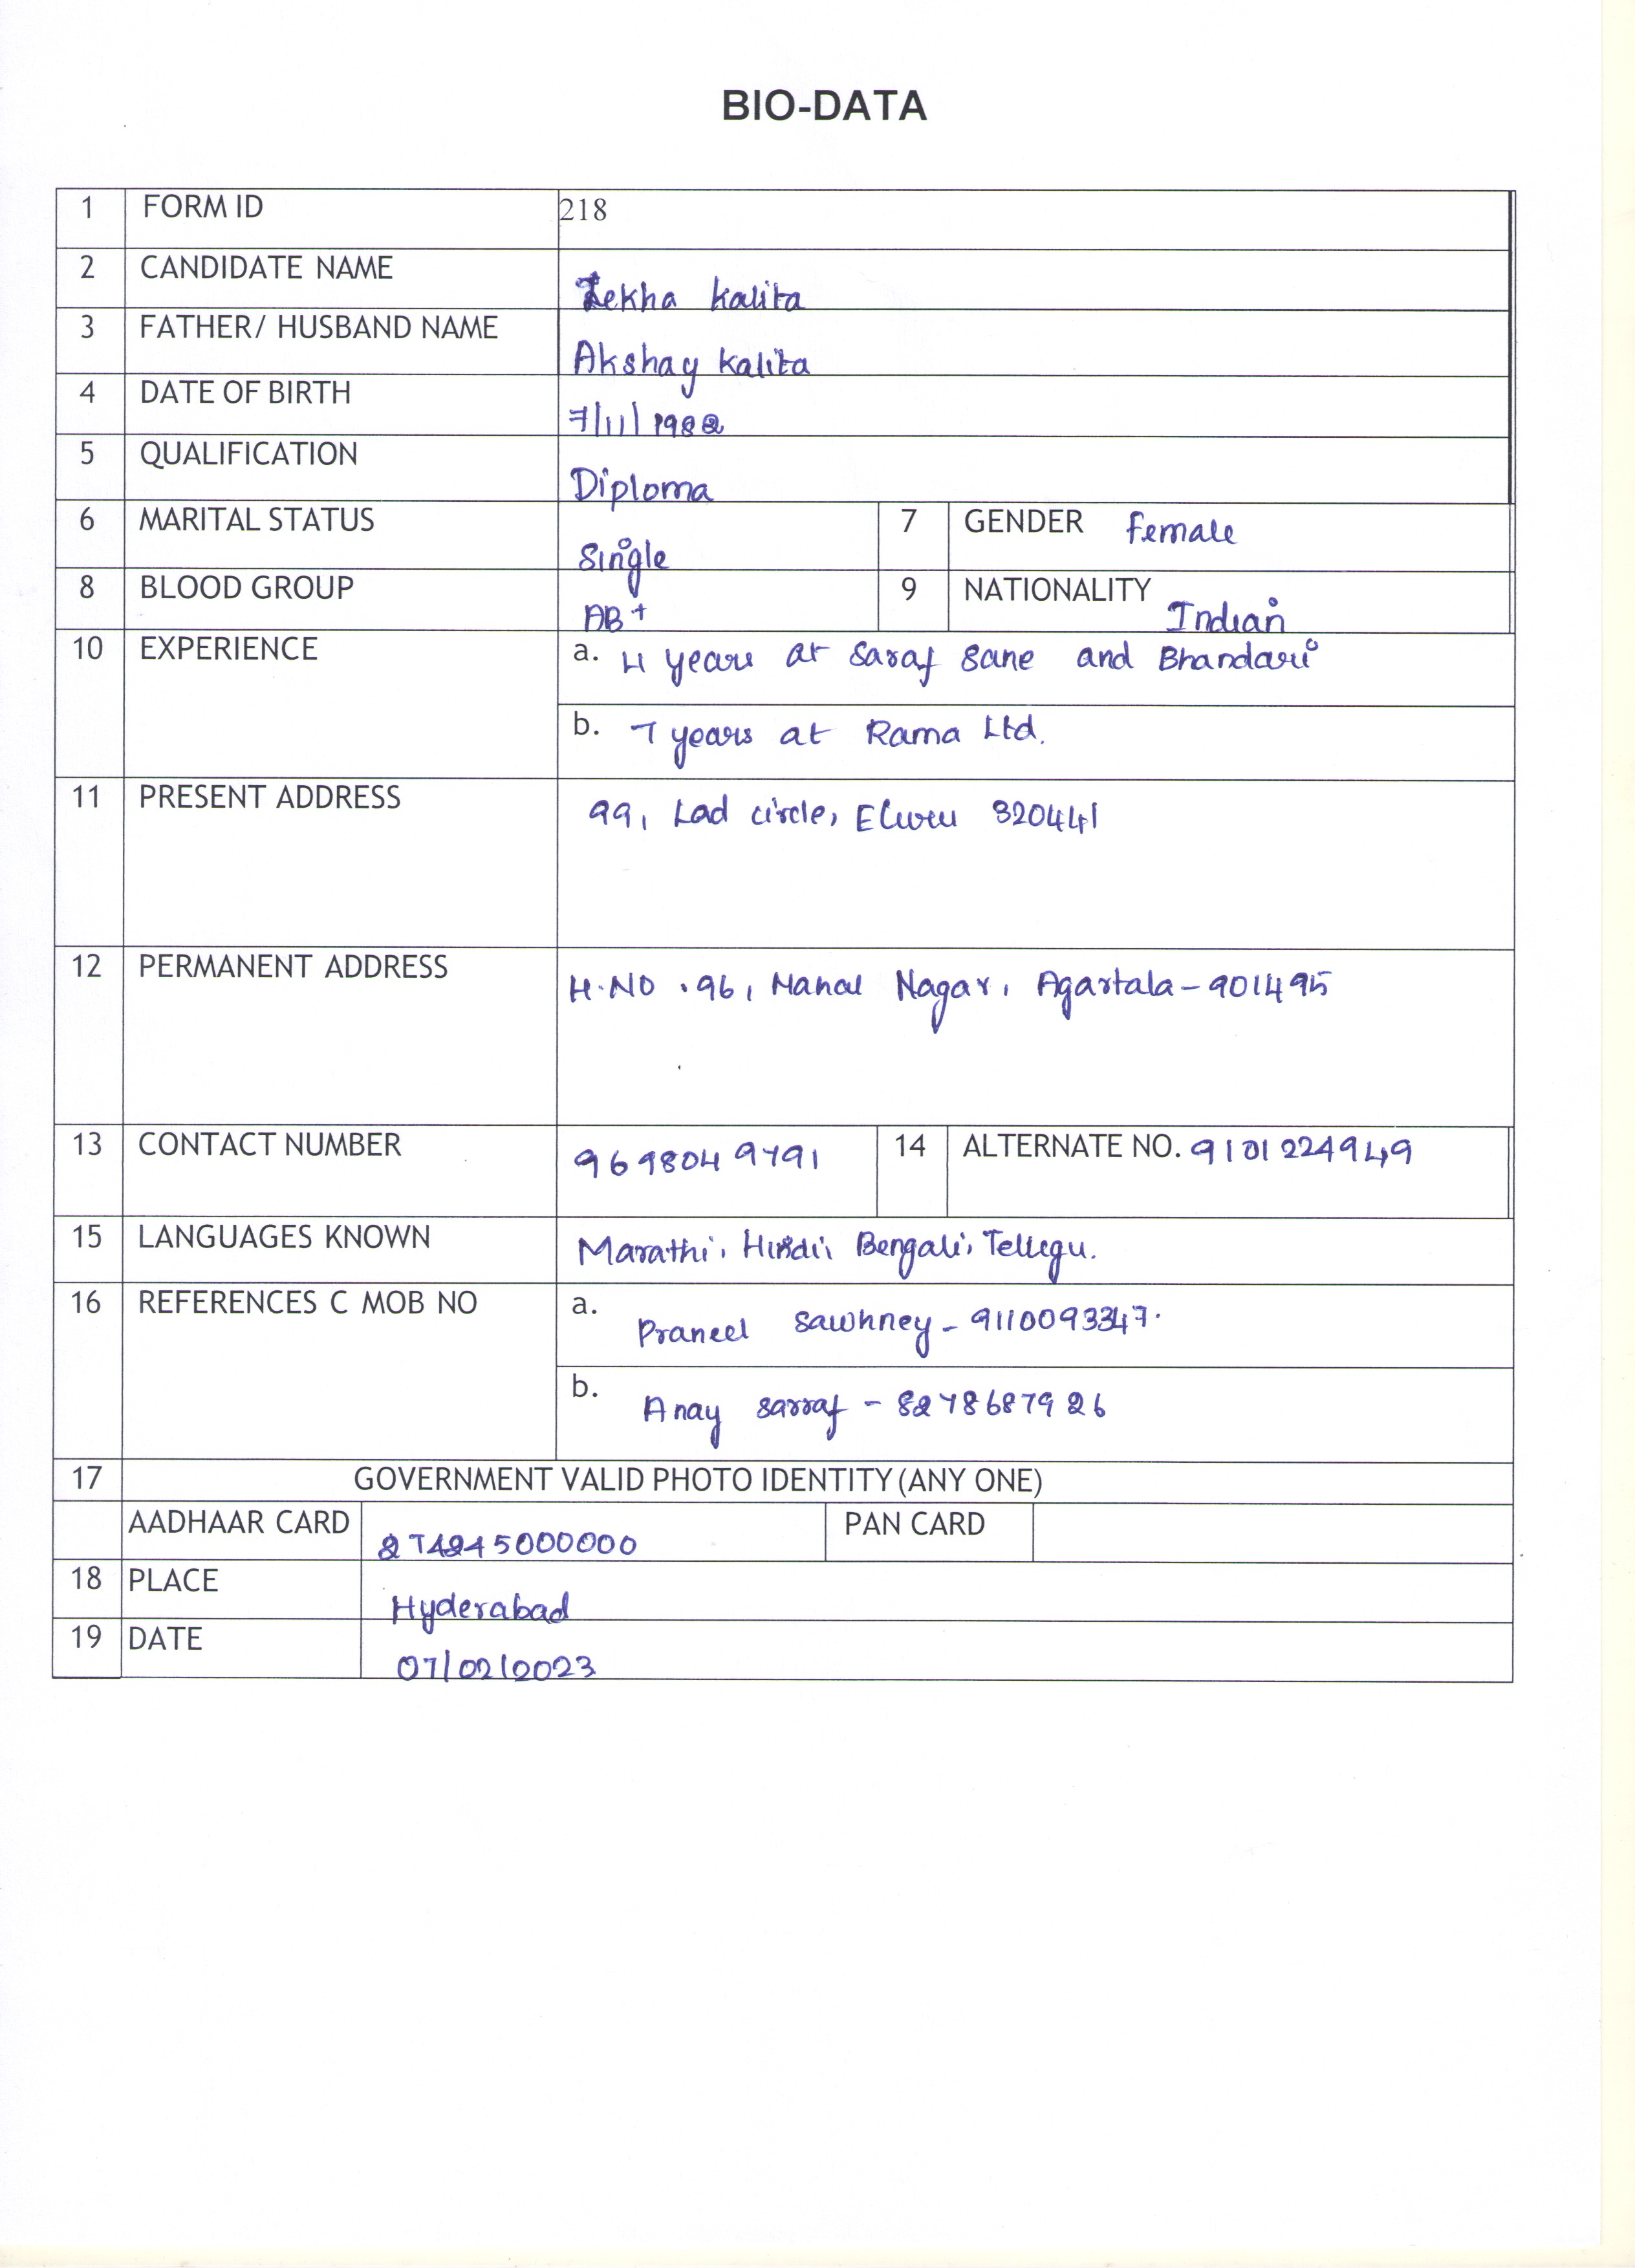 BIO-DATA
1 FORM ID 218
2 CANDIDATE NAME Lekha Kalita
3 FATHER/ HUSBAND NAME Akshay Kalita
4 DATE OF BIRTH 7/11/1982
5 QUALIFICATION Diploma
6 MARITAL STATUS Single 7 GENDER Female
8 BLOOD GROUP AB+ 9 NATIONALITY Indian
10 EXPERIENCE a. 4 years at Saraf Sane and Bhandari
b. 7 years at Rama Ltd.
11 PRESENT ADDRESS 99, Lad circle, Eluru 320441
12 PERMANENT ADDRESS H.NO. 96, Nagar, Agartala - 901495
13 CONTACT NUMBER 9698049791 14 ALTERNATE NO. 9101224949
15 LANGUAGES KNOWN Marathi, Hindi, Bengali, Telugu.
16 REFERENCES C MOB NO a. Praneel Sawhney - 9110093347.
b. Anay Sarraf - 8278687926
17 GOVERNMENT VALID PHOTO IDENTITY (ANY ONE)
AADHAAR CARD 274245000000 PAN CARD
18 PLACE Hyderabad
19 DATE 07/02/2023